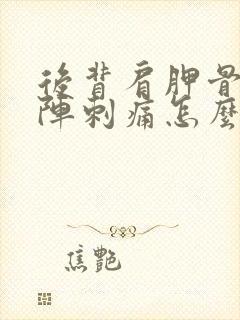 後背肩胛骨
陣刺痛怎麼
焦艷